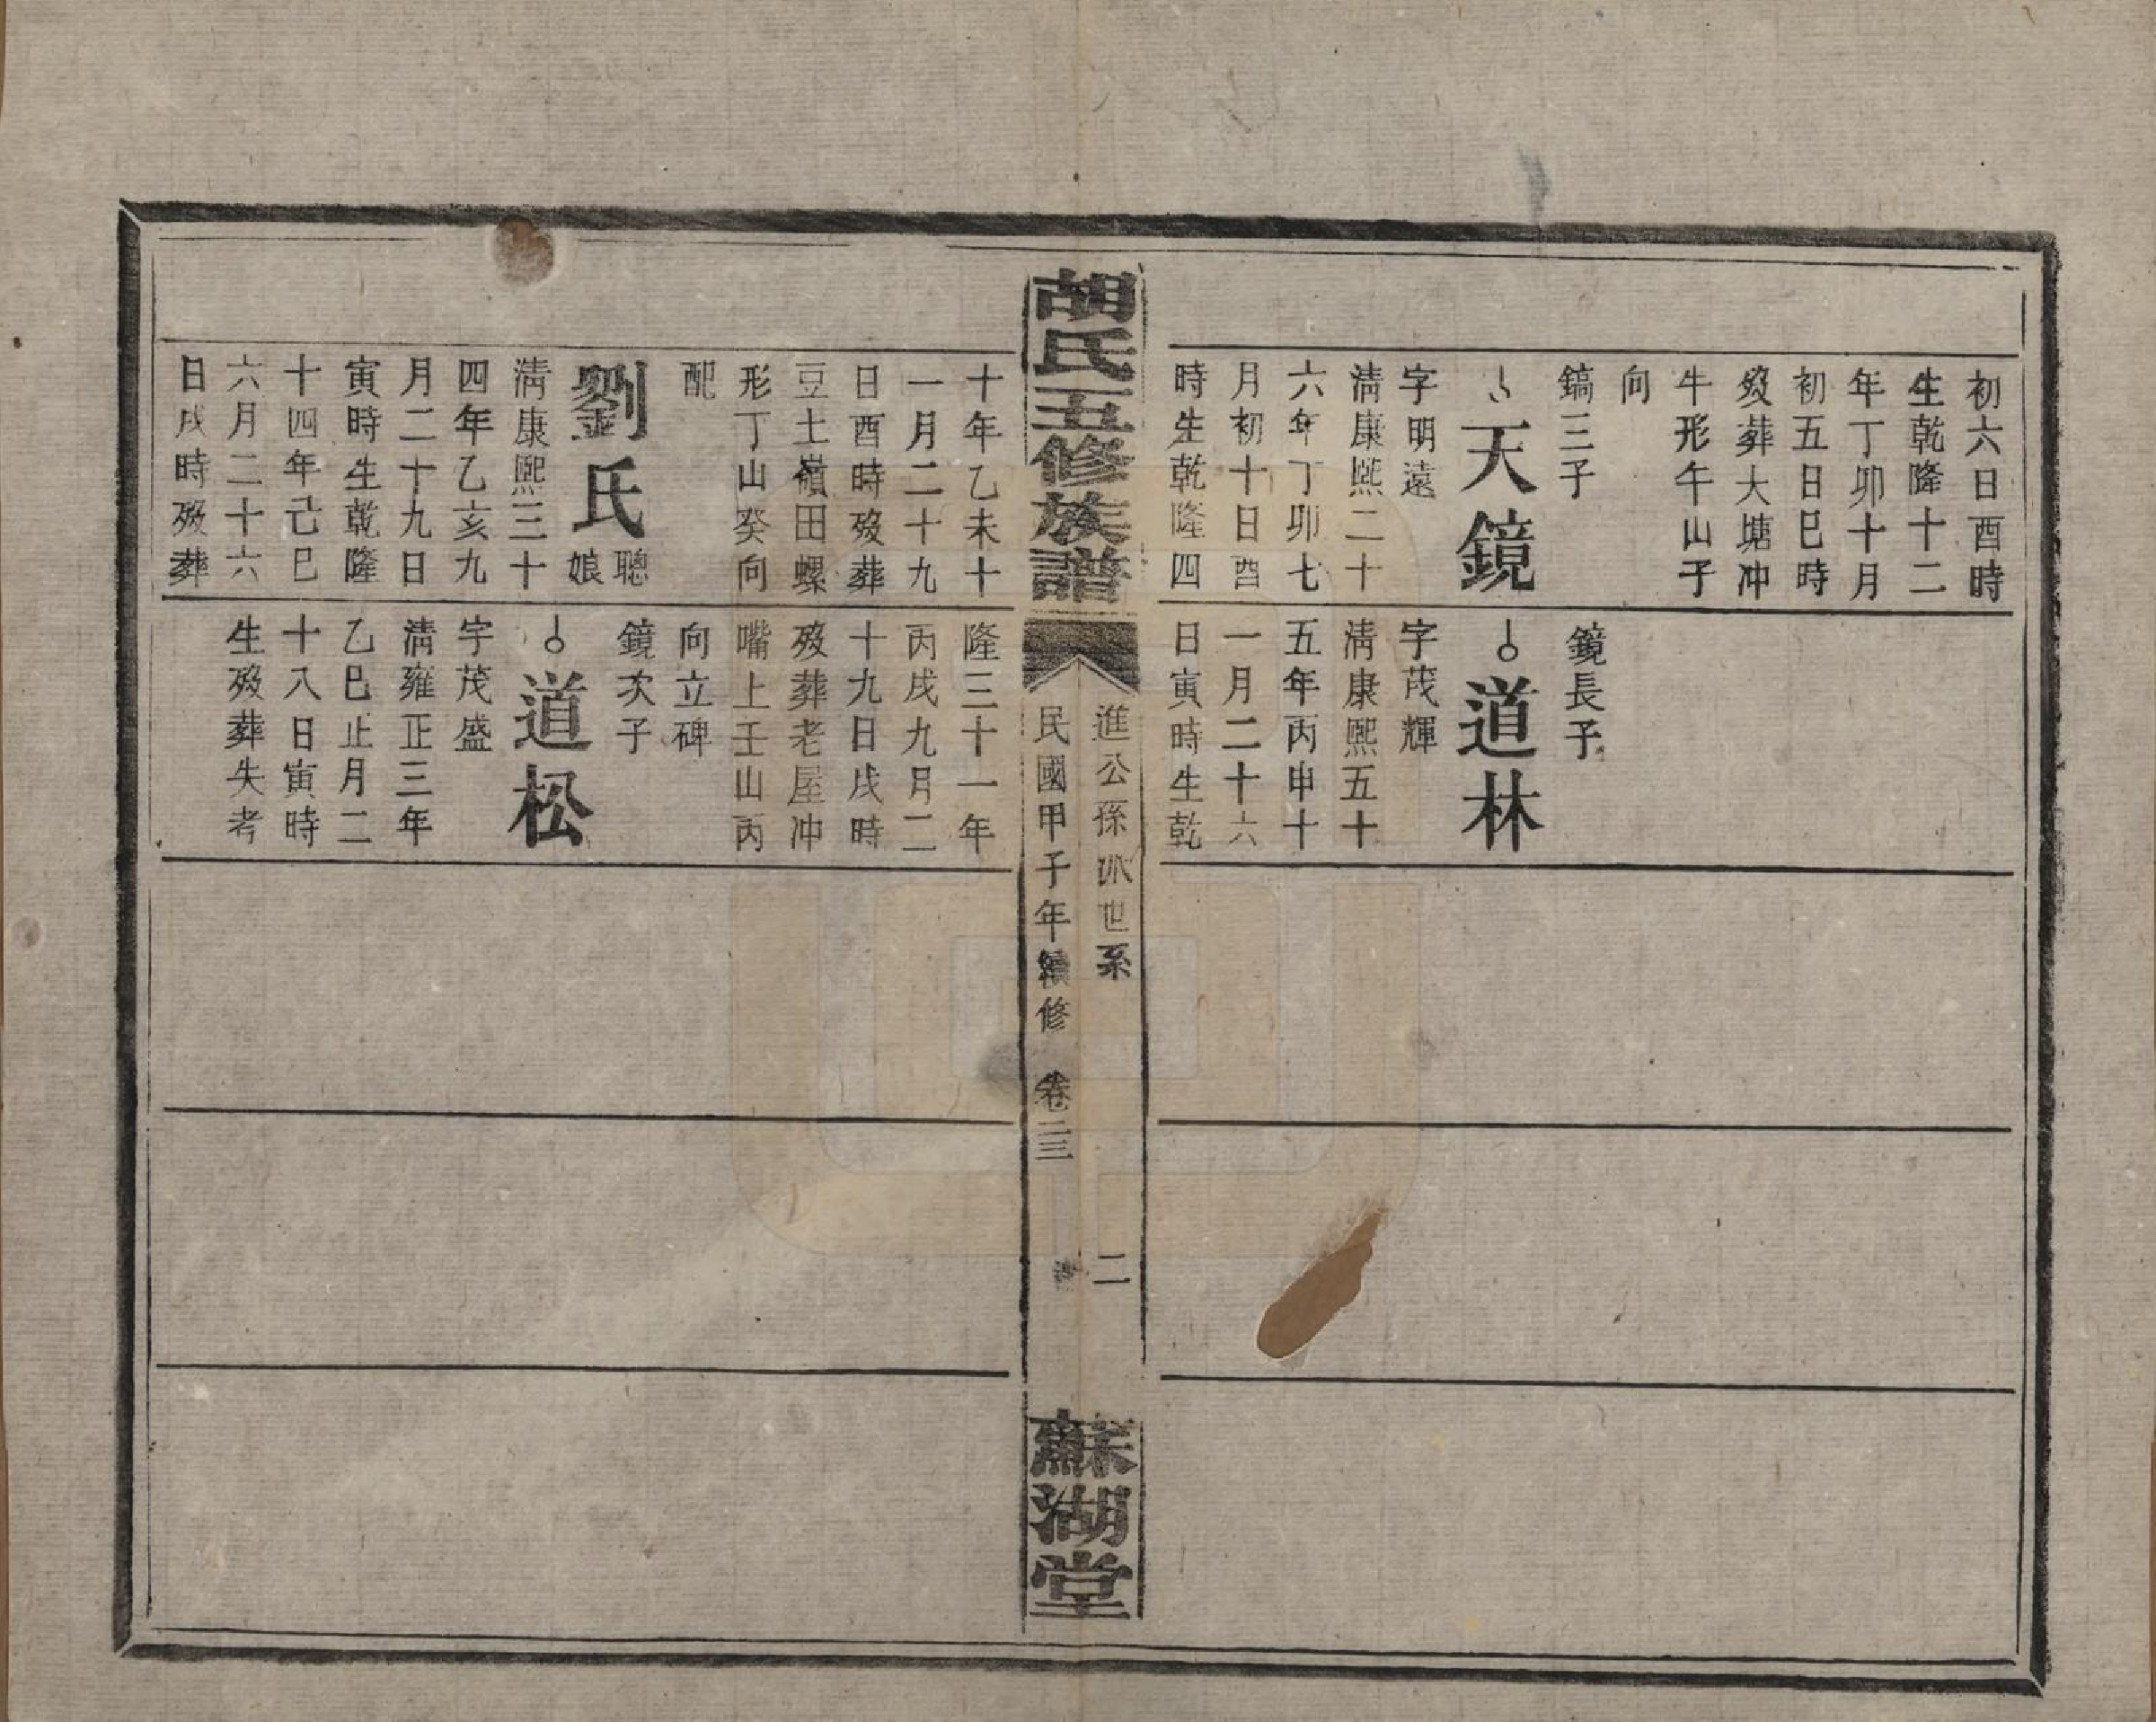 初六日酉時
生乾隆十二
年丁卯十月
初五日巳時
歿葬大塘冲
牛形午山子
向
鎬三子
天鏡
字明遠
清康熙二十
六年丁卯七
月初十日酉
時生乾隆四
鏡長子
道林
字茂輝
清康熙五十
五年丙申十
一月二十六
日寅時生乾
胡氏五修族譜
進公孫派世系
二
民國甲子年續修
卷二三
蘇湖堂
十年乙未十
一月二十九
日酉時歿葬
豆土嶺田螺
形丁山癸向
配
劉氏
聰娘
清康熙三十
四年乙亥九
月二十九日
寅時生乾隆
十四年己巳
六月二十六
日戌時歿葬
隆三十一年
丙戌九月二
十九日戌時
歿葬老屋冲
嘴上壬山丙
向立碑
鏡次子
道松
字茂盛
清雍正三年
乙巳正月二
十八日寅時
生歿葬失考